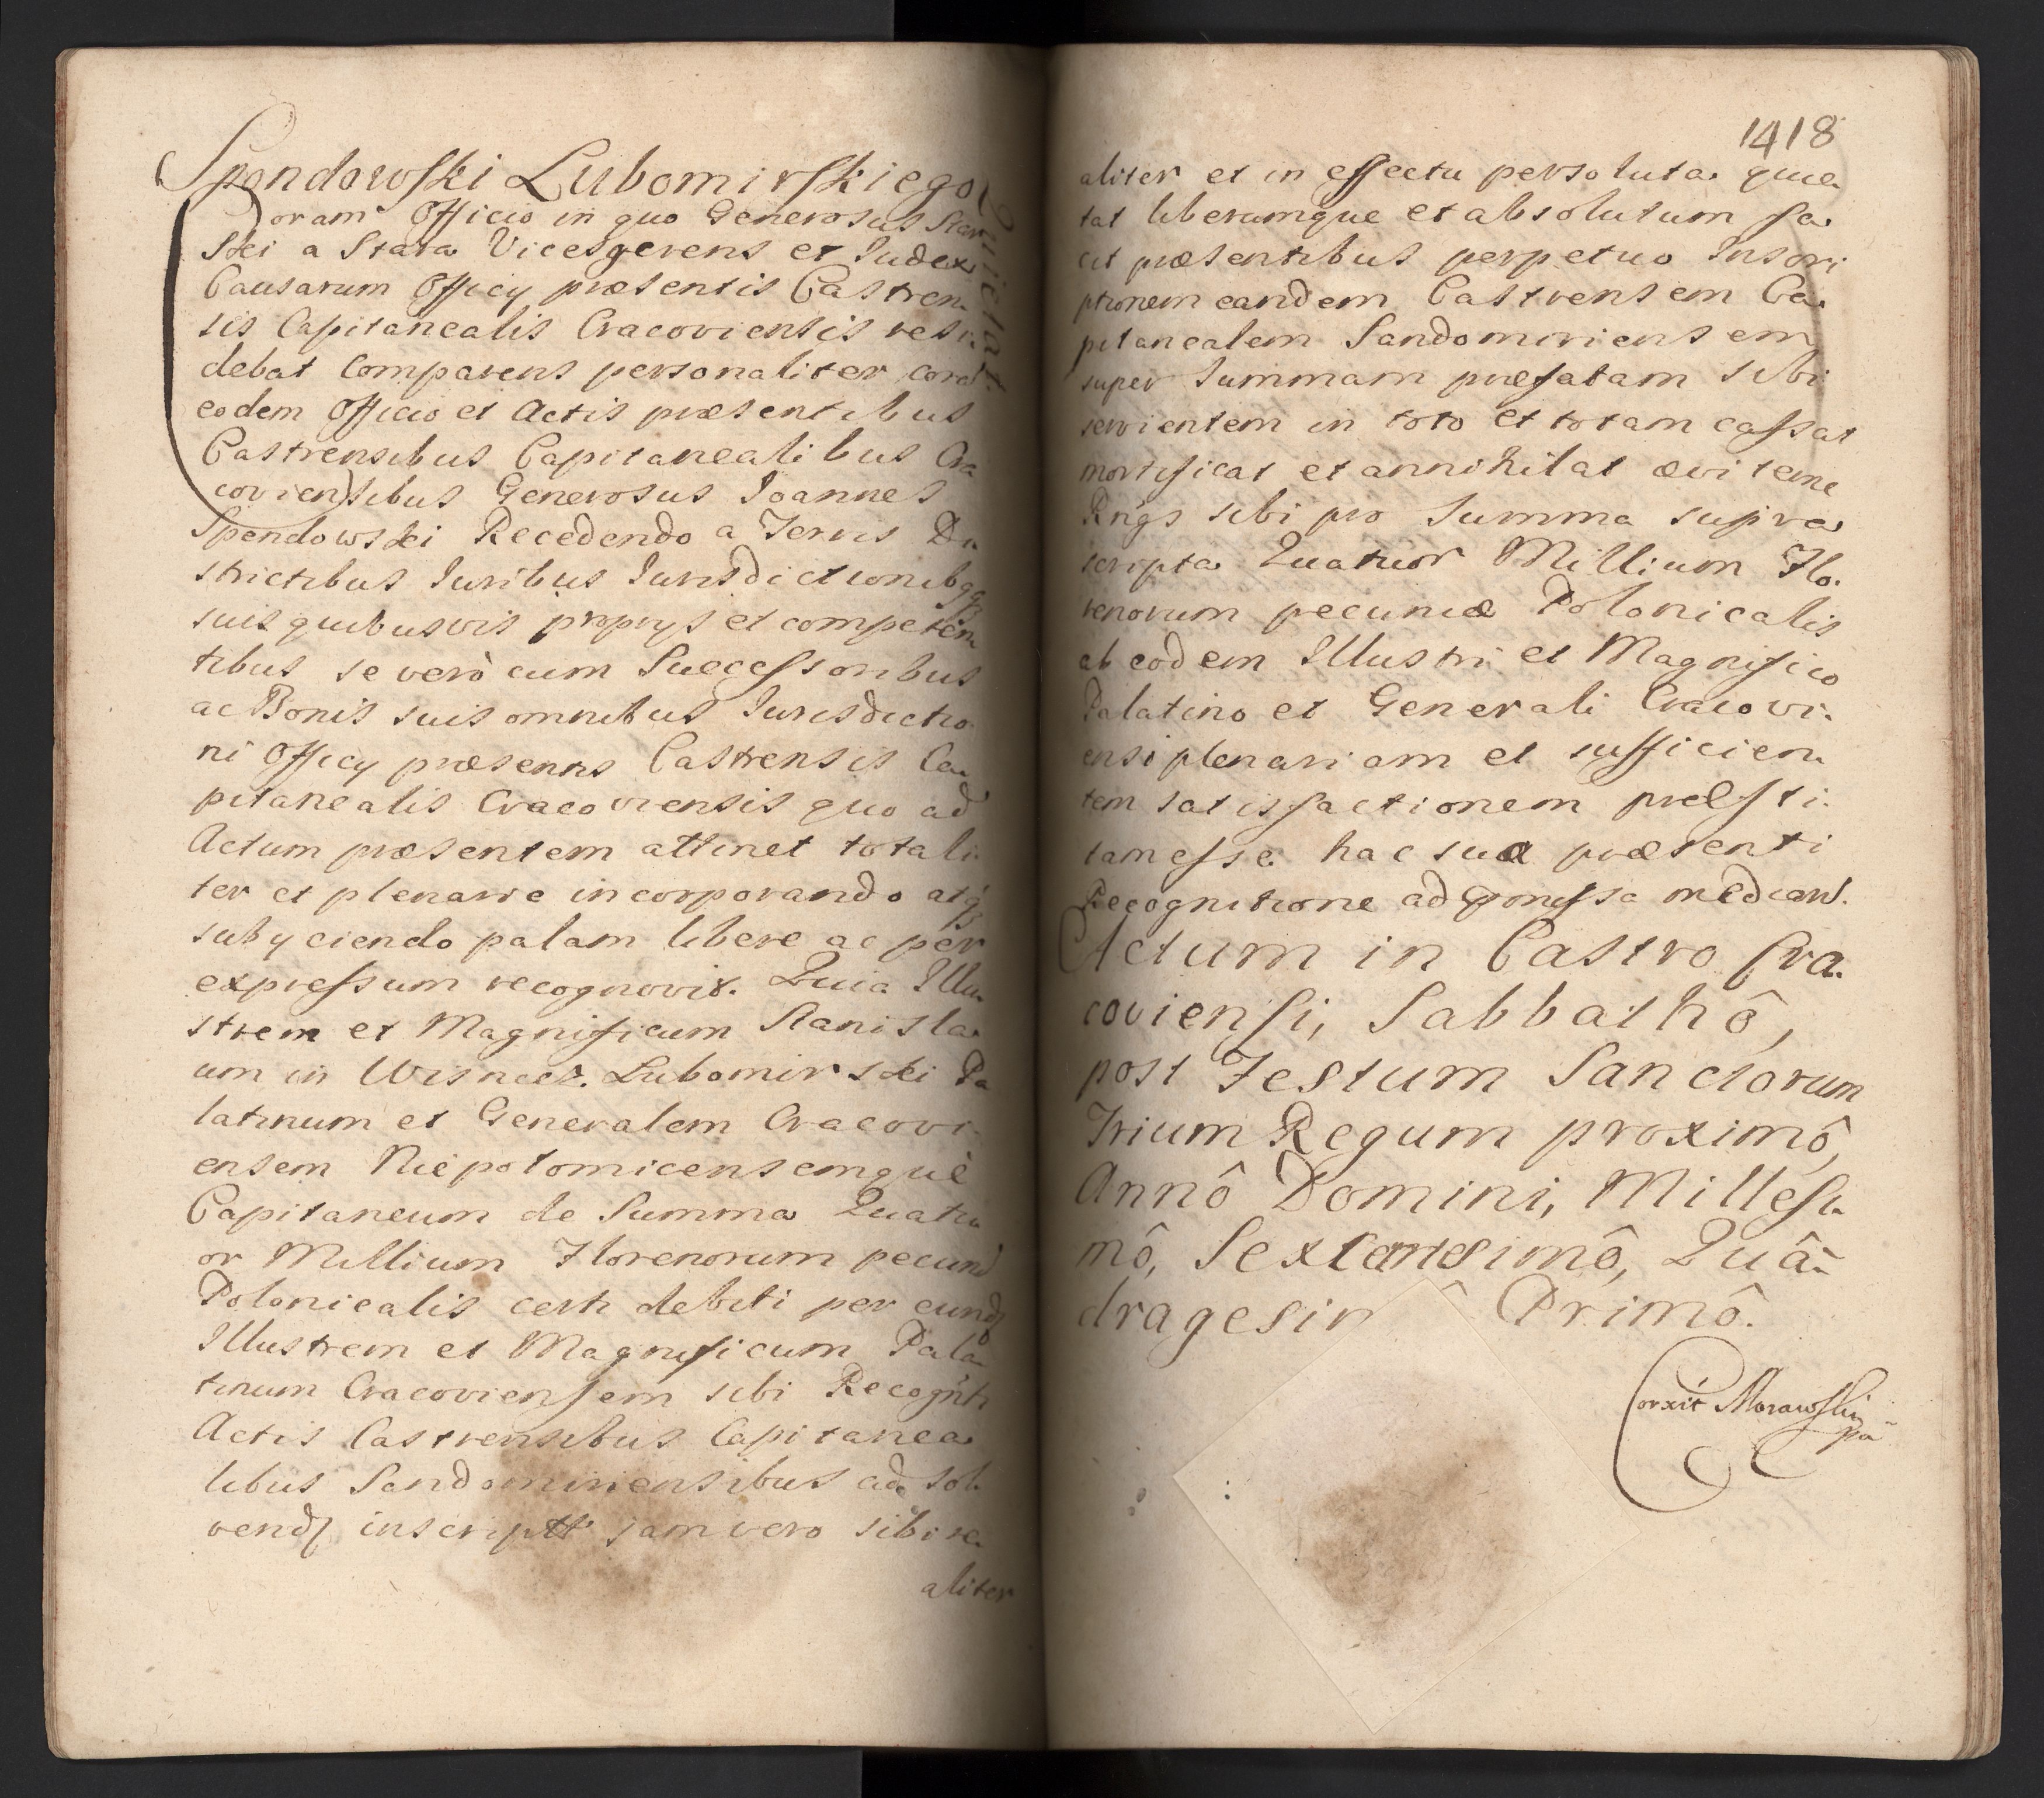 Spendowski Lubomirskiego
quietat.
Coram Officio in quo Generosus Skar
ski a Skała Vicesgerens et Judex
Causarum Officy præsentis Castren
sis Capitanealis Cracoviensis resi
debat comparens personaliter cora
eodem Officio et Actis præsentibus
Castrensibus Capitanealibus Cra
coviensibus Generosus Joannes
Spendowski Recedendo a Terris Di
strictibus Juribus Jurisdictionibqq
suis quibusvis proprys et competen
tibus se verò cum Successoribus
ac Bonis suis omnibus Jurisdictio
ni Officy præsentis Castrensis Ca
pitanealis Cracoviensis quo ad
Actum præsentem attinet totali
ter et plenarie incorporando atq
subyciendo palam libere ac per
expressum recognovit. Quia Illu
strem et Magnificum Stanisla
um in Wisnicz Lubomirski Pa
latinum et Generalem Cracovi
ensem Niepolomicensemque
Capitaneum de Summa Quatu
or Millium Florenorum pecuniæ
Polonicalis certi debiti per eund
Illustrem et Magnificum Pala
tinum Cracoviensem sibi Recognti
Actis Castrensibus Capitanea
libus Sandomiriensibus ad sol
vend inscript jam vero sibi re
aliter
1418
aliter et in effectu persoluta quie
tat liberumque et absolutum fa
cit præsentibus perpetuo Inscri
ptionem eandem Castrensem Ca
pitanealem Sandomiriensem
super Summam præfatam sibi
servientem in toto et totam cassat
mortificat et annihilat æviterne
Rngs sibi pro Summa supra
scripta Quatuor Millium Flo
renorum pecuniæ Polonicalis
ab eodem Illustri et Magnifico
Palatino et Generali Cracovi
ensi plenariam et sufficien
tem satisfactionem præsti
tam esse hac sua præsenti
Recognitione ad præmissa median.
Actum in Castro Cra
coviensi, Sabbathô,
post Festum Sanctorum
Trium Regum proximô,
Annô Domini, Millesi
mô, Sexcentesimô, Quâ
dragesim Primô.
Corxit Morawski